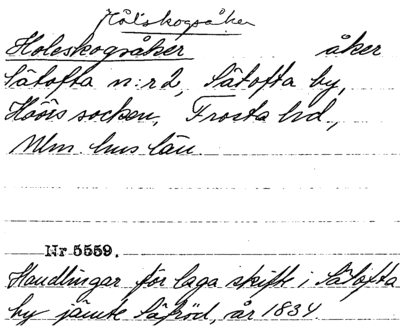 Hålskogsåker
Holeskogsåker åker
Sätofta n:r 2, Sätofta by,
Höörs socken, Frosta hd,
Mlm. hus län.
Nr 5559.
Handlingar för laga skifte i Sätofta
by jämte Säröd, år 1834.